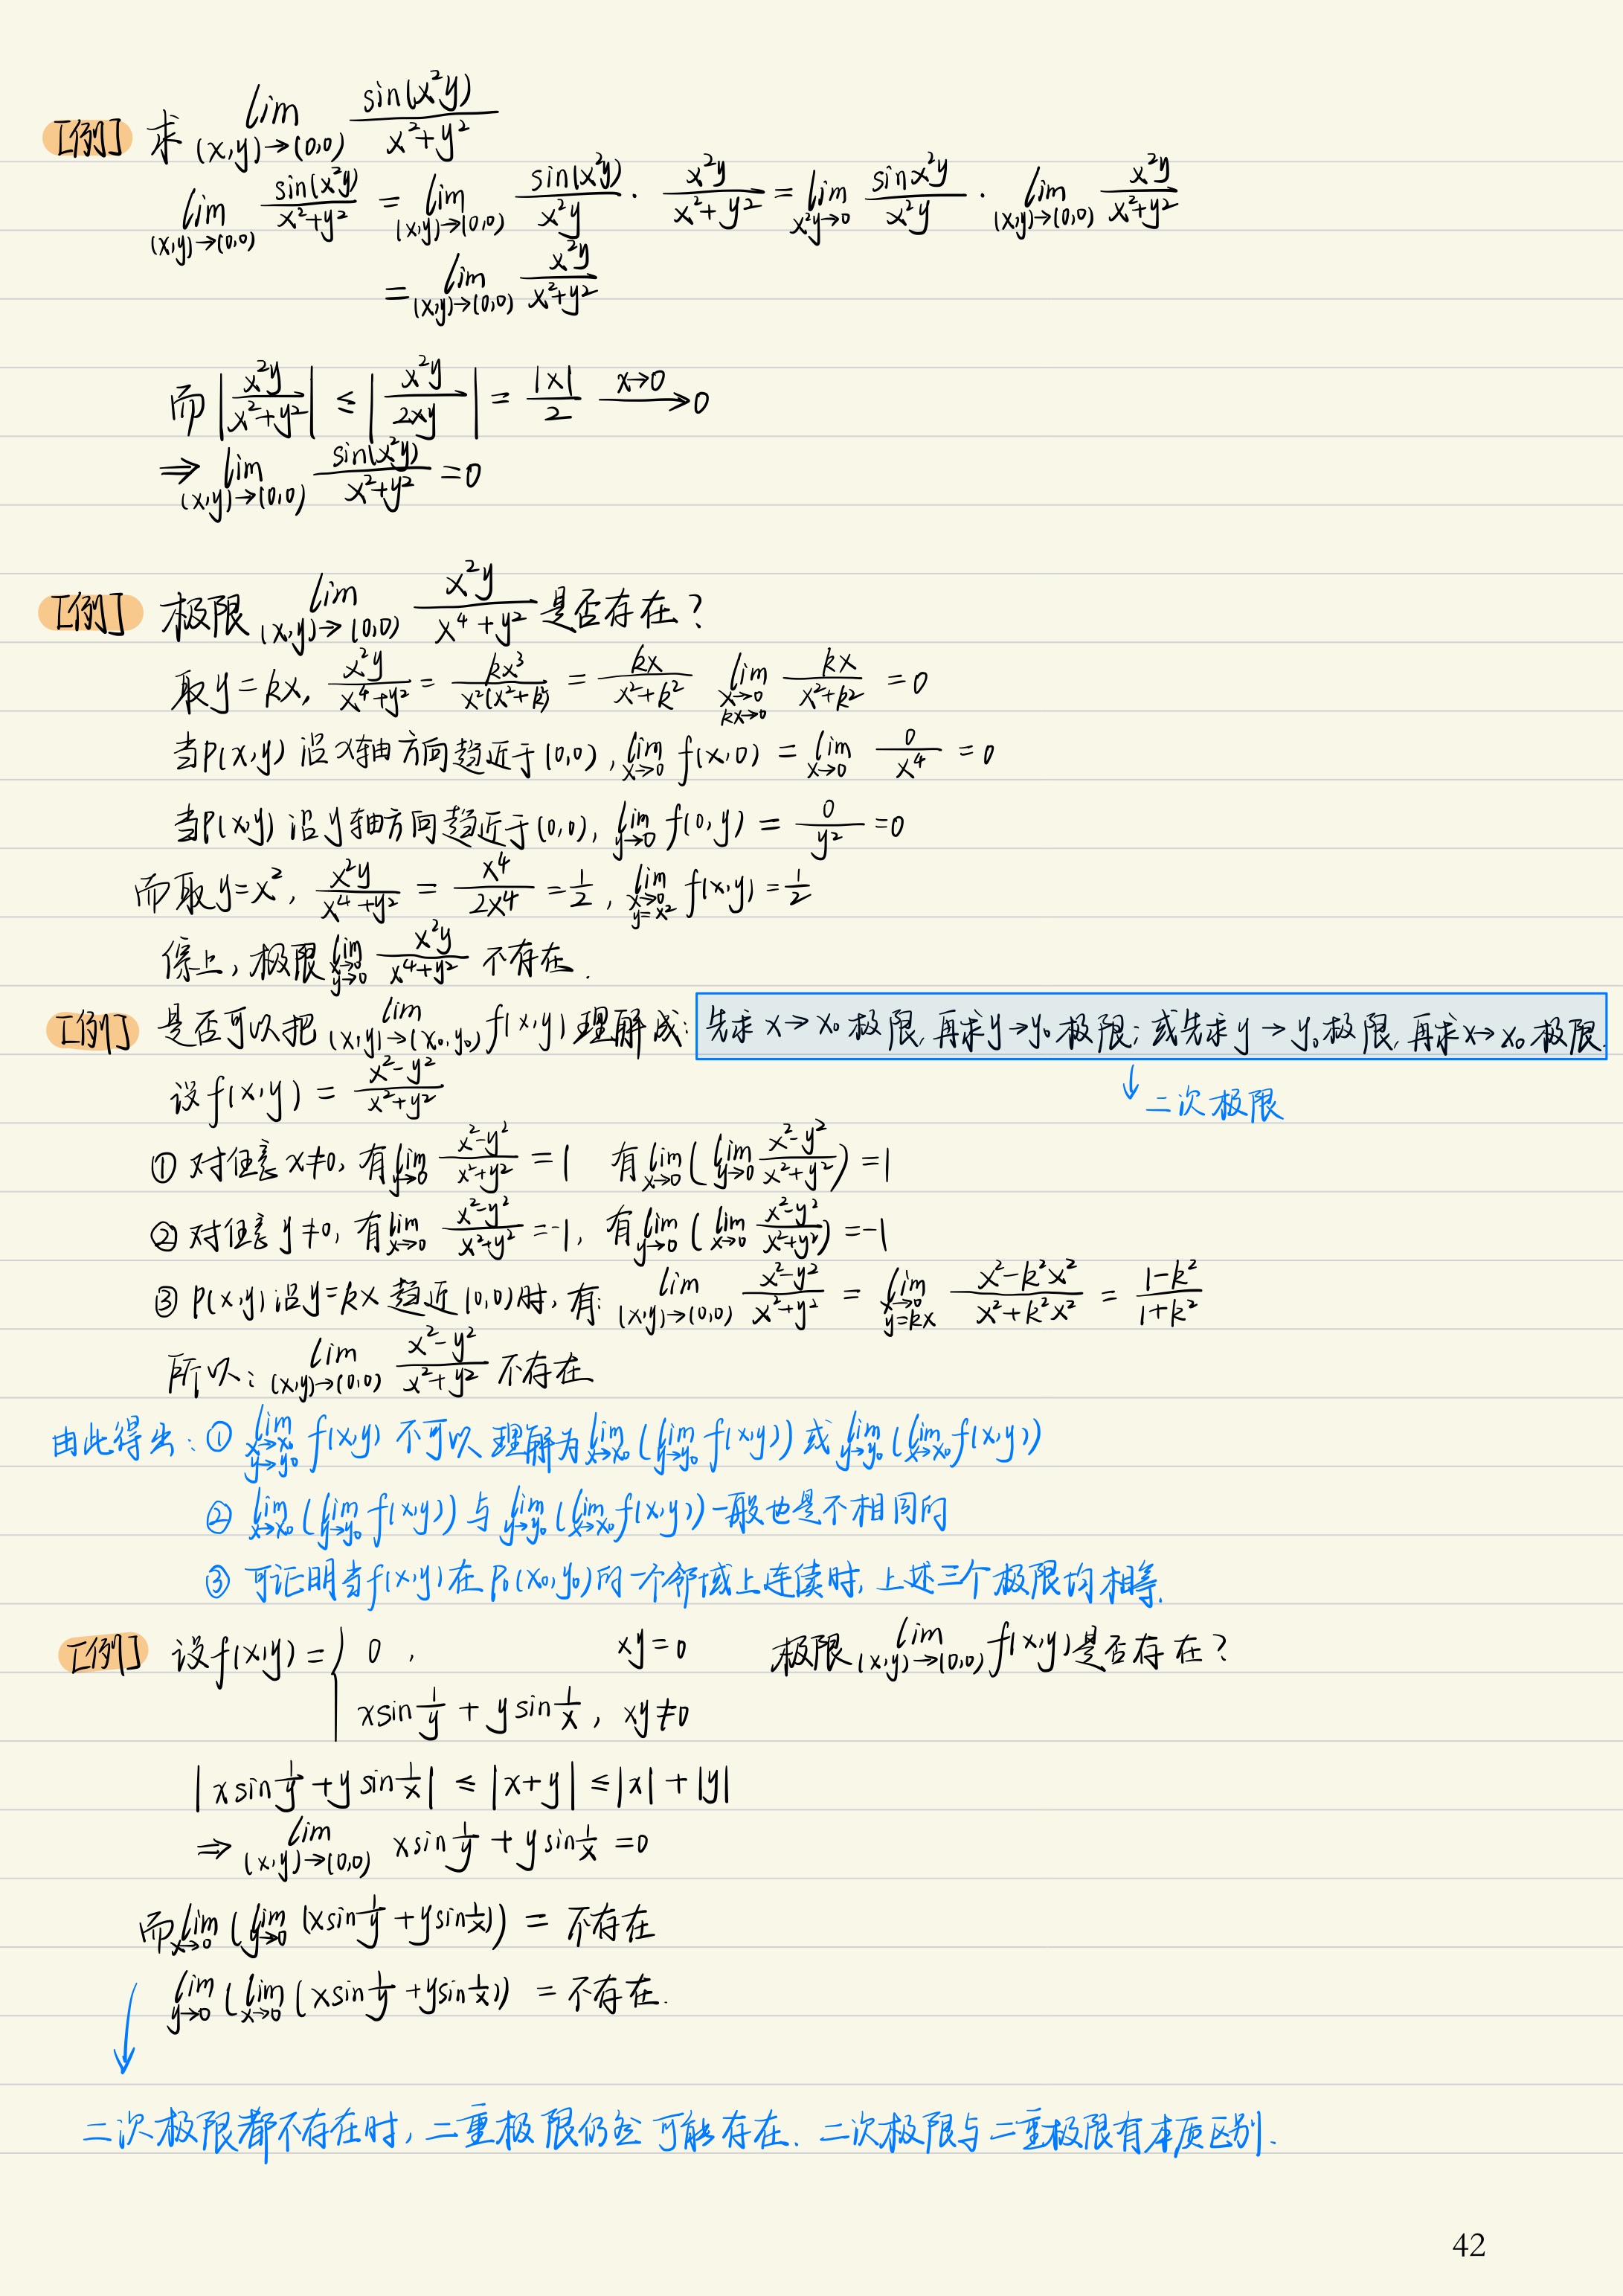 [例] 求 lim_{(x,y)→(0,0)} sin(x²y)/(x²+y²)
lim_{(x,y)→(0,0)} sin(x²y)/(x²+y²) = lim_{(x,y)→(0,0)} sin(x²y)/(x²y) · x²y/(x²+y²) = lim_{x²y→0} sinx²y/(x²y) · lim_{(x,y)→(0,0)} x²y/(x²+y²)
= lim_{(x,y)→(0,0)} x²y/(x²+y²)
而 |x²y/(x²+y²)| ≤ |x²y/(2xy)| = |x|/2 —x→0→ 0
⇒ lim_{(x,y)→(0,0)} sin(x²y)/(x²+y²) = 0
[例] 极限 lim_{(x,y)→(0,0)} x²y/(x⁴+y²) 是否存在?
取y=kx, x²y/(x⁴+y²) = kx³/(x²(x²+k)) = kx/(x²+k²) lim_{x→0 kx→0} kx/(x²+k²) = 0
当P(x,y) 沿x轴方向趋近于(0,0), lim_{x→0} f(x,0) = lim_{x→0} 0/x⁴ = 0
当P(x,y) 沿y轴方向趋近于(0,0), lim_{y→0} f(0,y) = 0/y² = 0
而取y=x², x²y/(x⁴+y²) = x⁴/(2x⁴) = 1/2, lim_{x→0 y=x²} f(x,y) = 1/2
综上, 极限 lim_{x→0 y→0} x²y/(x⁴+y²) 不存在.
[例] 是否可以把 lim_{(x,y)→(x₀,y₀)} f(x,y) 理解成: 先求 x→x₀ 极限, 再求y→y₀ 极限; 或先求y→y₀极限, 再求x→x₀ 极限.
设 f(x,y) = (x²-y²)/(x²+y²)
↓ 二次极限
① 对任意 x≠0, 有 lim_{y→0} (x²-y²)/(x²+y²) = 1 有 lim_{x→0} ( lim_{y→0} (x²-y²)/(x²+y²) ) = 1
② 对任意 y≠0, 有 lim_{x→0} (x²-y²)/(x²+y²) = -1, 有 lim_{y→0} ( lim_{x→0} (x²-y²)/(x²+y²) ) = -1
③ P(x,y) 沿y=kx 趋近(0,0)时, 有: lim_{(x,y)→(0,0)} (x²-y²)/(x²+y²) = lim_{x→0 y=kx} (x²-k²x²)/(x²+k²x²) = (1-k²)/(1+k²)
所以: lim_{(x,y)→(0,0)} (x²-y²)/(x²+y²) 不存在
由此得出: ① lim_{x→x₀ y→y₀} f(x,y) 不可以 理解为 lim_{x→x₀} ( lim_{y→y₀} f(x,y)) 或 lim_{y→y₀} ( lim_{x→x₀} f(x,y))
② lim_{x→x₀} ( lim_{y→y₀} f(x,y)) 与 lim_{y→y₀} ( lim_{x→x₀} f(x,y)) 一般也是不相同的
③ 可证明当f(x,y)在 P₀(x₀,y₀)的一个邻域上连续时, 上述三个极限均相等.
[例] 设f(x,y) = { 0 , xy=0 极限 lim_{(x,y)→(0,0)} f(x,y)是否存在?
xsin1/y + ysin1/x, xy≠0
|xsin1/y + ysin1/x| ≤ |x+y| ≤ |x|+|y|
⇒ lim_{(x,y)→(0,0)} xsin1/y + ysin1/x = 0
而 lim_{x→0} ( lim_{y→0} (xsin1/y + ysin1/x)) = 不存在
lim_{y→0} ( lim_{x→0} (xsin1/y + ysin1/x)) = 不存在.
↓
二次极限都不存在时, 二重极限仍然 可能存在. 二次极限与二重极限有本质区别.
42